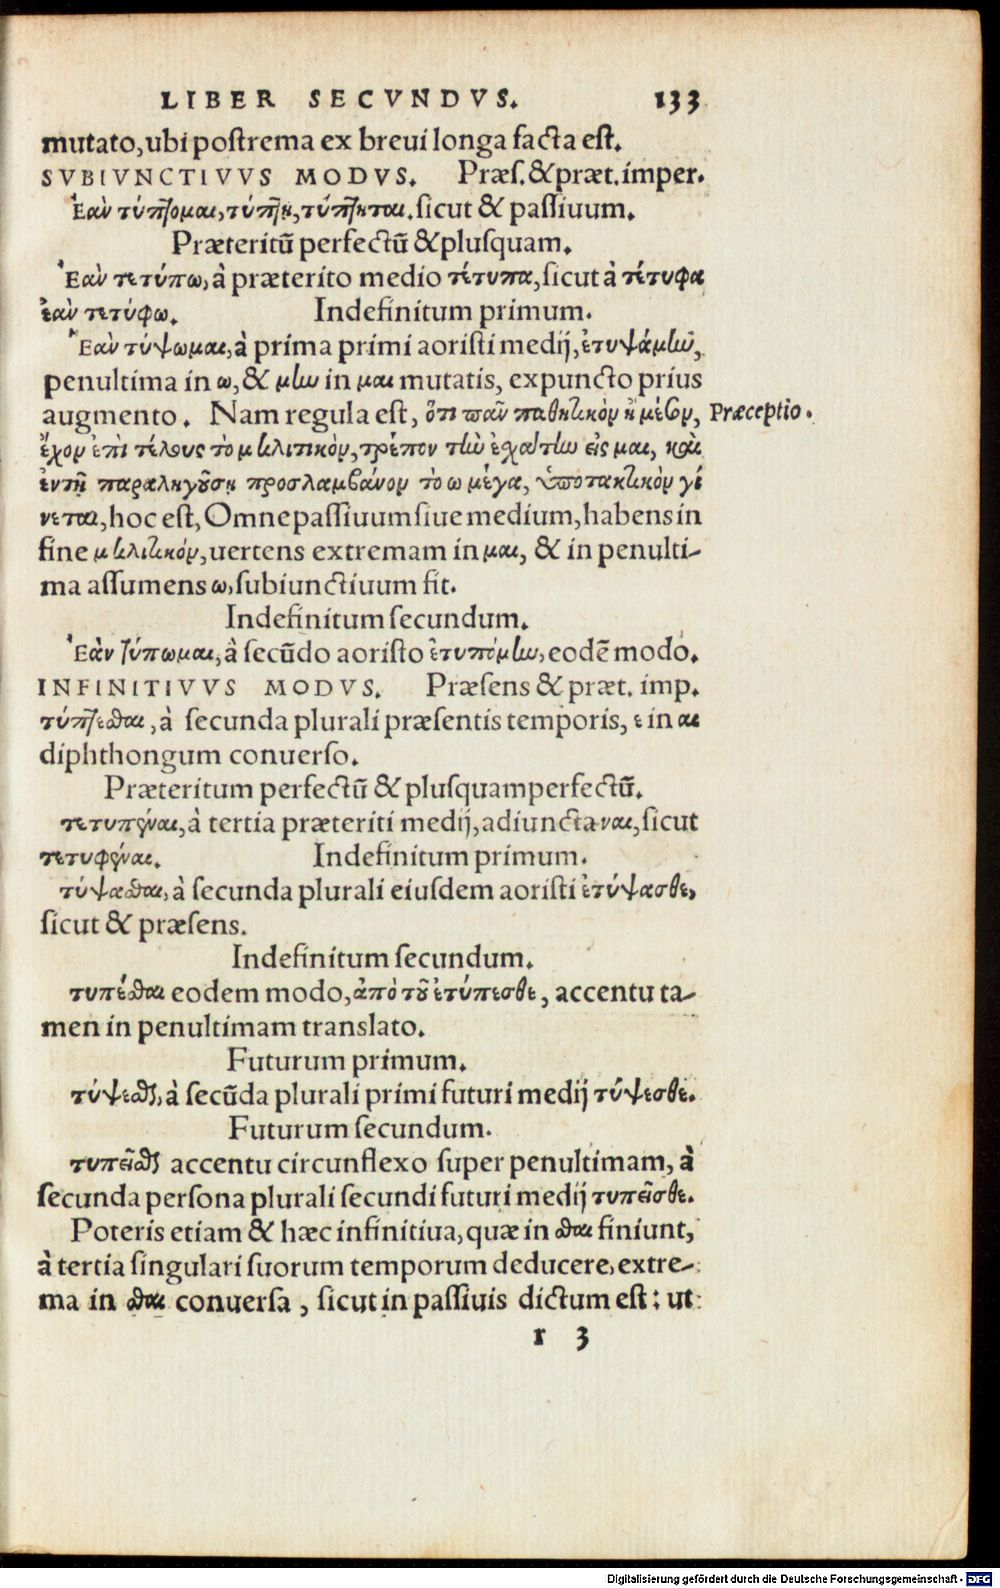 LIBER SECVNDVS. 133
mutato, ubi postrema ex brevi longa facta est.
SVBIVNCTIVVS MODVS. Præs. & præt. imper.
Ἐὰν τύπτομαι, τύπτῃ, τύπτηται. sicut & passiuum.
Præteritū perfectū & plusquam.
Ἐὰν τετύπω, à præterito medio τέτυπα, sicut à τέτυφα
ἐὰν τετύφω. Indefinitum primum.
Ἐὰν τύψωμαι, à prima primi aoristi medij, ἐτυψάμην,
penultima in ω, & μην in μαι mutatis, expuncto prius
augmento. Nam regula est, ὅτι πᾶν παθητικὸν ἢ μέσον, Præceptio.
ἔχον ἐπὶ τέλους τὸ μ κλιτικὸν, τρέπον τὴν ἐχάτην εἰς μαι, καὶ
ἐν τῇ παραληγούσῃ προσλαμβάνον τὸ ω μέγα, ὑποτακτικὸν γί
νεται, hoc est, Omne passiuum siue medium, habens in
fine μ κλιτικόν, uertens extremam in μαι, & in penulti-
ma assumens ω, subiunctiuum fit.
Indefinitum secundum.
Ἐὰν τύπωμαι, à secūdo aoristo ἐτυπόμην, eodē modo.
INFINITIVVS MODVS. Præsens & præt. imp.
τύπτεσθαι, à secunda plurali præsentis temporis, ε in αι
diphthongum conuerso.
Præteritum perfectū & plusquamperfectū.
τετυπέναι, à tertia præteriti medij, adiuncta ναι, sicut
τετυφέναι. Indefinitum primum.
τύψασθαι, à secunda plurali eiusdem aoristi ἐτύψασθε,
sicut & præsens.
Indefinitum secundum.
τυπέσθαι eodem modo, ἀπὸ τοῦ ἐτύπεσθε, accentu ta-
men in penultimam translato.
Futurum primum.
τύψεσθαι, à secūda plurali primi futuri medij τύψεσθε.
Futurum secundum.
τυπεῖσθαι accentu circunflexo super penultimam, à
secunda persona plurali secundi futuri medij τυπεῖσθε.
Poteris etiam & hæc infinitiua, quæ in σθαι finiunt,
à tertia singulari suorum temporum deducere, extre-
ma in σθαι conuersa, sicut in passiuis dictum est: ut
r 3
Digitalisierung gefördert durch die Deutsche Forschungsgemeinschaft - DFG